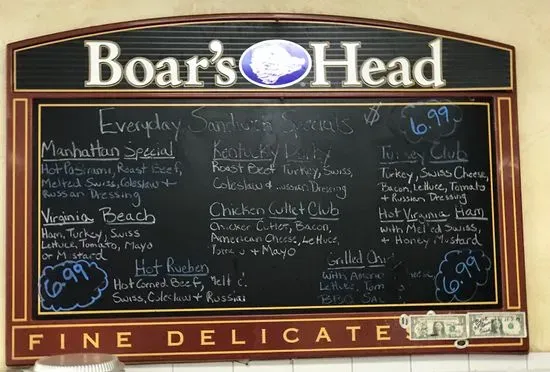 Boar's Head
Everyday Sandwich Specials
$ 6.99
Manhattan Special
Hot Pastrami, Roast Beef,
Melted Swiss, Coleslaw +
Russian Dressing
Kentucky Derby
Roast Beef Turkey, Swiss,
Coleslaw + Dressing
Turkey Club
Turkey, Swiss Cheese,
Bacon, Lettuce, Tomato
+ Russian Dressing
Virginia Beach
Ham, Turkey, Swiss
Lettuce, Tomato, Mayo
or Mustard
Chicken Cutlet Club
Chicken Cutlet, Bacon,
American Cheese, Lettuce,
+ Mayo
Hot Virginia Ham
with Melted Swiss,
+ Honey Mustard
6.99
Hot Rueben
Hot Corned Beef,
Swiss, Coleslaw + Russian
Grilled
With
Lettuce,
BBQ
6.99
FINE DELICATE